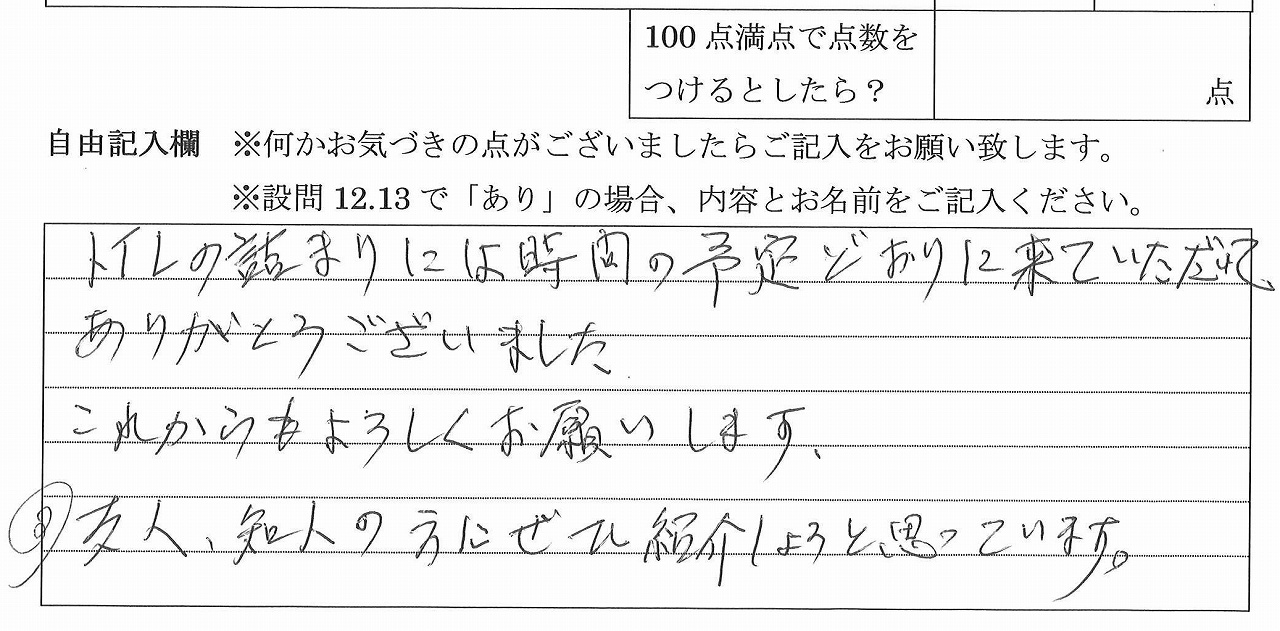 100点満点で点数を
つけるとしたら？
点
自由記入欄 ※何かお気づきの点がございましたらご記入をお願い致します。
※設問12.13で「あり」の場合、内容とお名前をご記入ください。
トイレの詰まりには時間の予定どおりに来ていただけて、
ありがとうございました
これからもよろしくお願いします、
友人、知人の方にぜひ紹介しようと思っています。